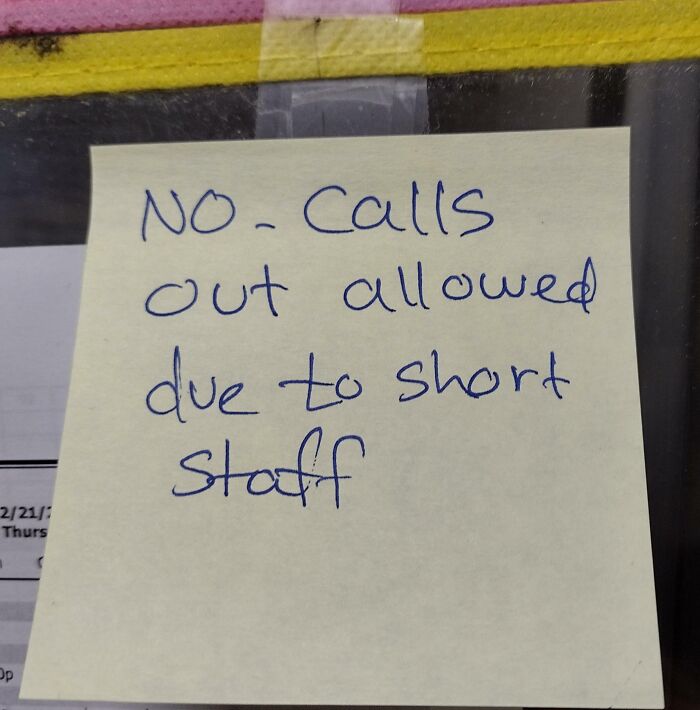 NO - Calls
out allowed
due to short
staff
2/21/
Thurs
0p